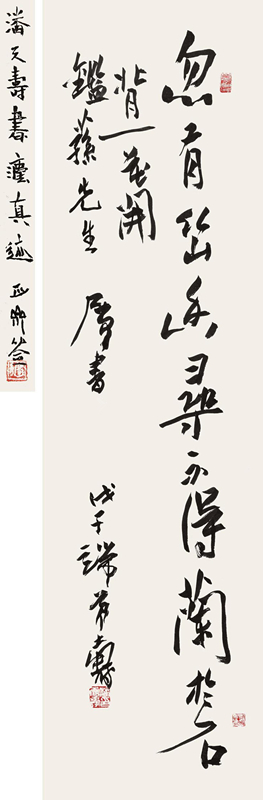 忽有幽香尋不得蘭於石
背一花開
鑑蓀先生 屬書
戊子端節壽
潘天壽書真迹